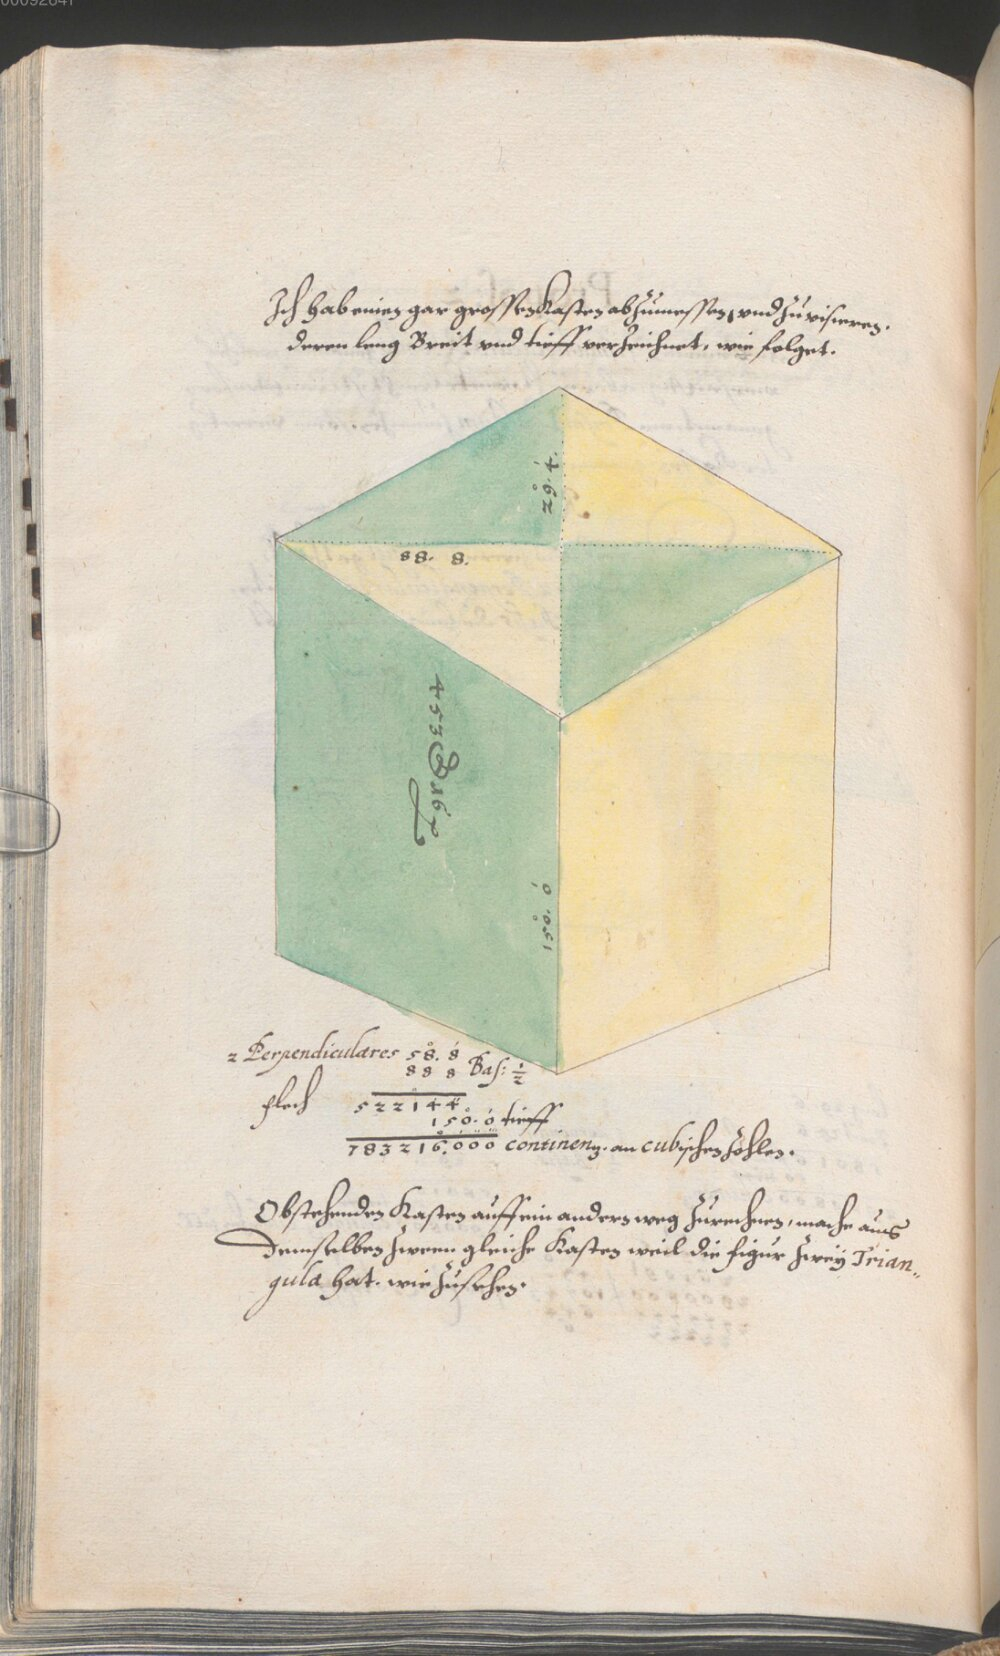 Ich hab einen gar grossen Kasten abzumessen, und zu visieren.
deren leng Breit und tieff verzeichnet, wie folget.
29. 4.
88. 8.
150. 0
2 Perpendiculares 58. 8
88 8 Bas: 1/2
flech 522144
150. 0 tieff
783216.000 an cubischen Höhlen.
Obstehenden Kasten auff ein andern weg zurechnen, mache aus
demselben zween gleiche Kasten weil die figur zwey Trian„
gula hat. wie zusehen.